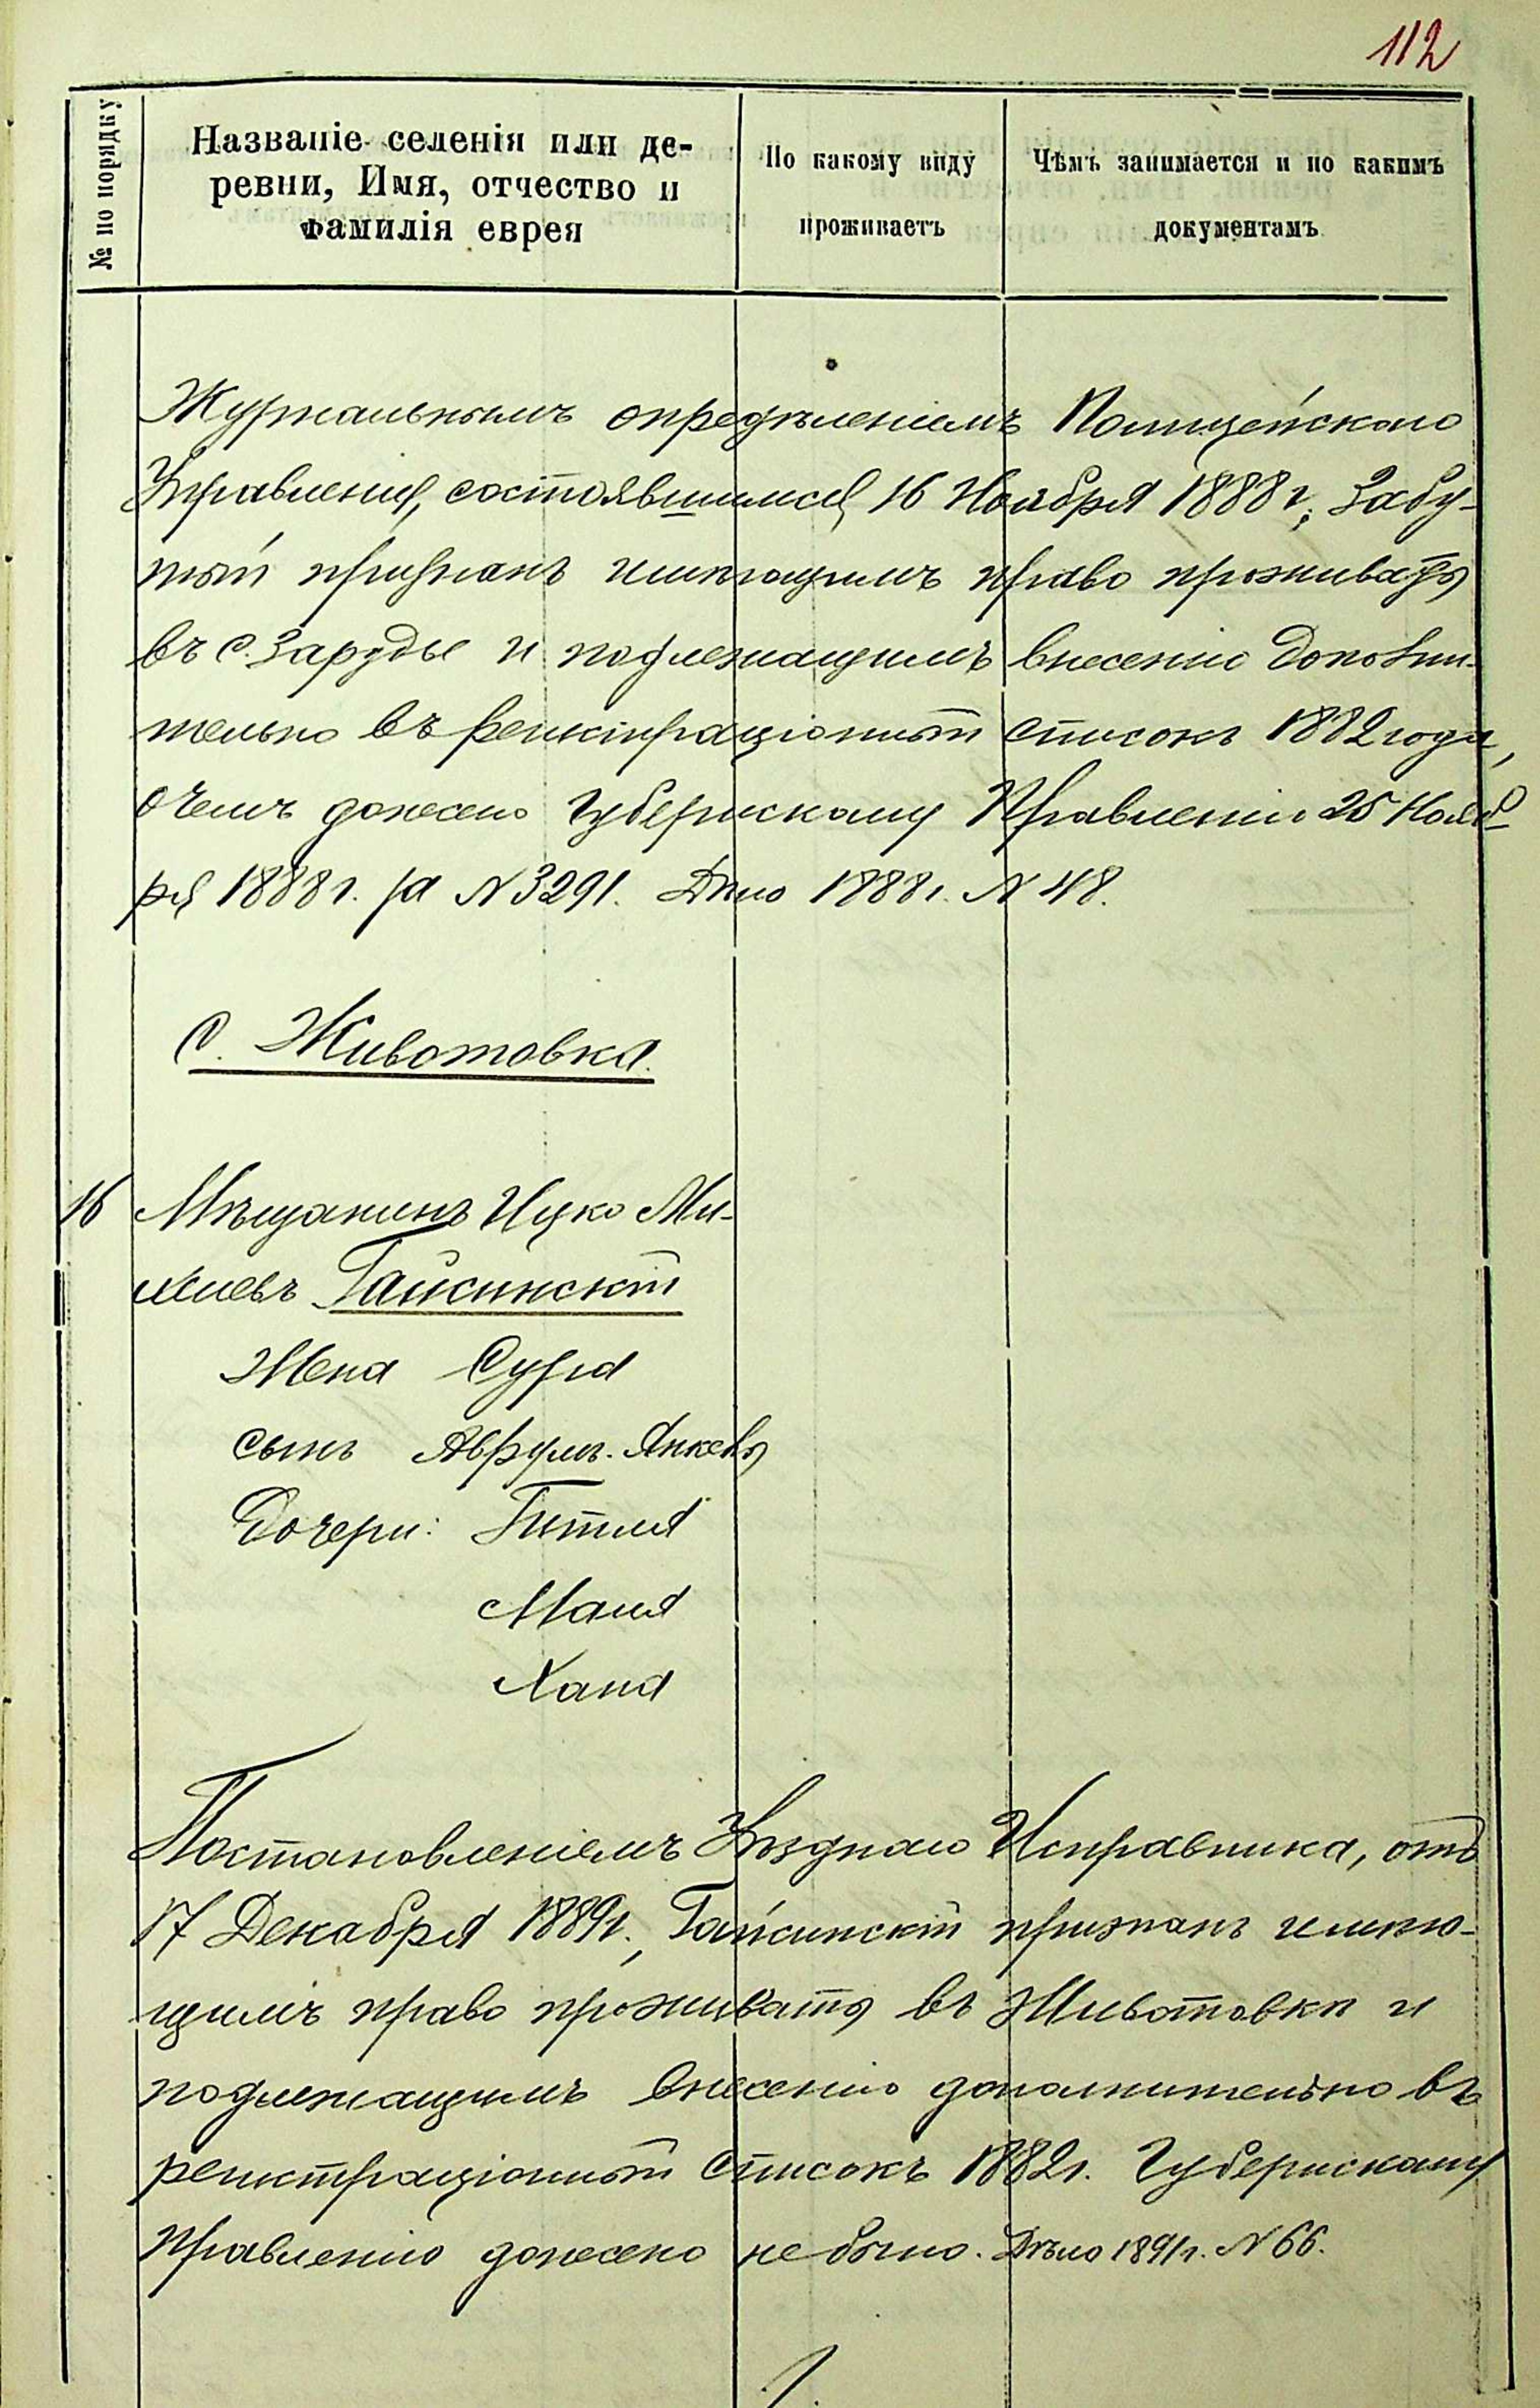 112
№ по порядку
Названіе селенія или де-
ревни, Имя, отчество и
фамилія еврея
По какому виду
проживаетъ
Чѣмъ занимается и по какимъ
документамъ
Журнальнымъ опредѣленіемъ Полицейскаго
Управленія, состоявшимся 16 Ноября 1888 г., Забу-
тый признанъ имѣющимъ право проживать
въ с. Зарудье и подлежащимъ внесенію дополни-
тельно въ регистраціонный списокъ 1882 года,
о чемъ донесено Губернскому Правленію 25 Нояб-
ря 1888 г. за № 3291. Дѣло 1888 г. № 48.
С. Животовка.
16 Мѣщанинъ Ицко Ми-
хлевъ Гайсинскій
Жена Сура
сынъ Аврумъ-Янкель
Дочери: Гитля
Маля
Хана
Постановленіемъ Уѣзднаго Исправника, отъ
17 Декабря 1889 г., Гайсинскій признанъ имѣю-
щимъ право проживать въ Животовкѣ и
подлежащимъ внесенію дополнительно въ
регистраціонный списокъ 1882 г. Губернскому
Правленію донесено не было. Дѣло 1891 г. № 66.